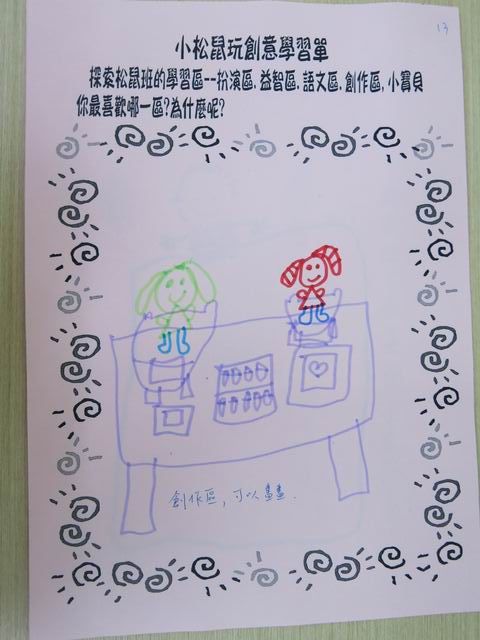 13
小松鼠玩創意學習單
探索松鼠班的學習區--扮演區.益智區.語文區.創作區.小寶貝
你最喜歡哪一區?為什麼呢?
創作區,可以畫畫.